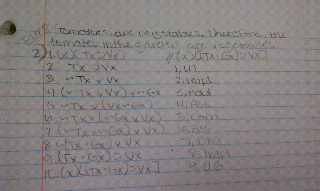 Tomatoes are vegetables. Therefore, the
tomatoes in the garden are vegetables
2) 1. (x)(Tx⊃Vx) // (x)[(Tx·Gx)⊃Vx]
2. Tx⊃Vx 1, UI
3. ~Tx v Vx 2, Impl
4. (~Tx v Vx) v ~Gx 3, Add
5. ~Tx v (Vx v ~Gx) 4, Ass
6. ~Tx v (~Gx v Vx) 5, Com
7. (~Tx v ~Gx) v Vx 6, Ass
8. ~(Tx·Gx) v Vx 7,
9. (Tx·Gx)⊃Vx 8, Impl
10. (x)[(Tx·Gx)⊃Vx] 9, UG